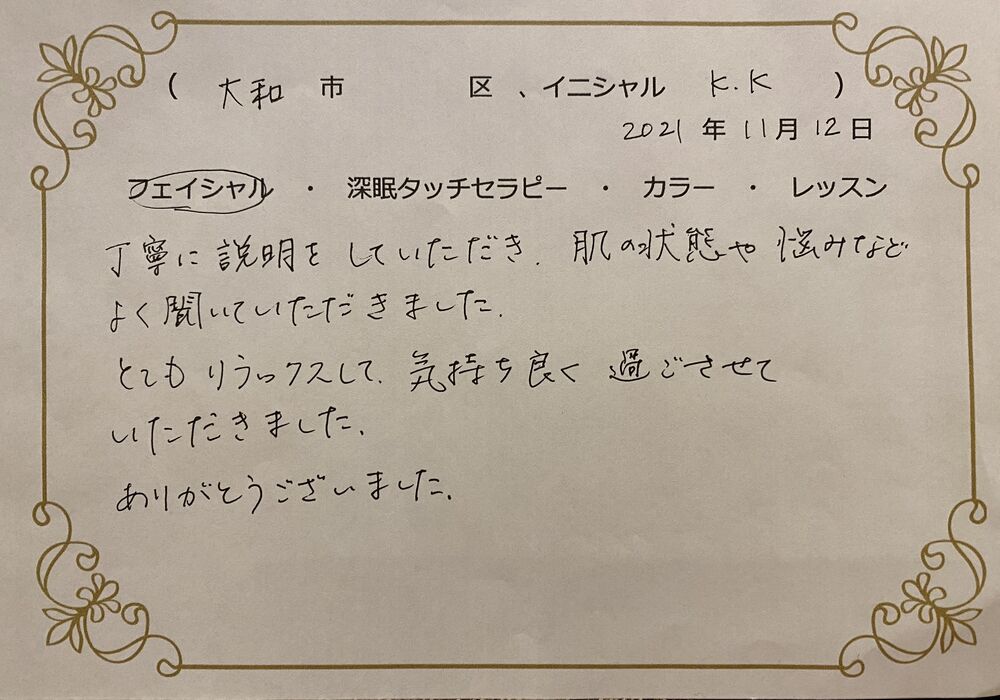 ( 大和 市 区 、イニシャル K.K )
2021 年 11 月 12 日
フェイシャル ・ 深眠タッチセラピー ・ カラー ・ レッスン
丁寧に説明をしていただき、肌の状態や悩みなど
よく聞いていただきました。
とてもリラックスして、気持ち良く過ごさせて
いただきました。
ありがとうございました。